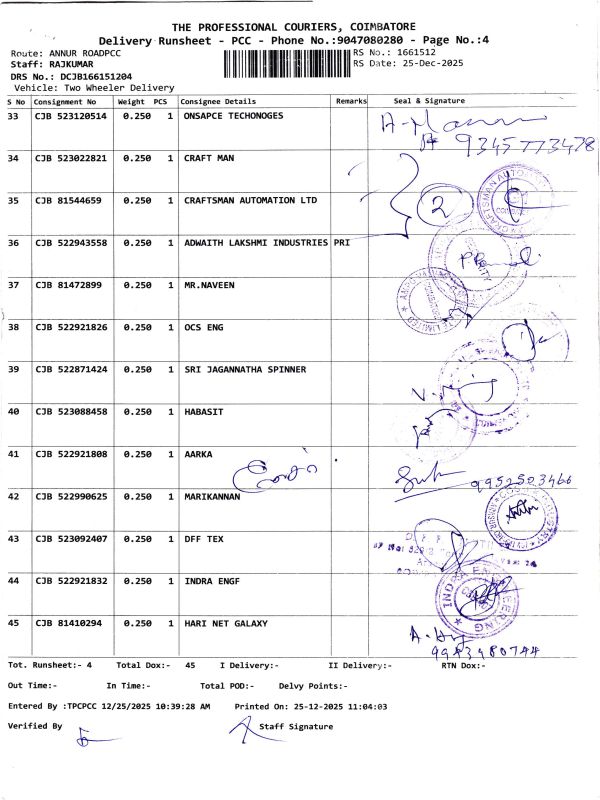 THE PROFESSIONAL COURIERS, COIMBATORE
Delivery Runsheet - PCC - Phone No.:9047080280 - Page No.:4
Route: ANNUR ROADPCC RS No.: 1661512
Staff: RAJKUMAR RS Date: 25-Dec-2025
DRS No.: DCJB166151204
Vehicle: Two Wheeler Delivery
S No Consignment No Weight PCS Consignee Details Remarks Seal & Signature
33 CJB 523120514 0.250 1 ONSAPCE TECHONOGES
9345773478
34 CJB 523022821 0.250 1 CRAFT MAN
35 CJB 81544659 0.250 1 CRAFTSMAN AUTOMATION LTD 2
36 CJB 522943558 0.250 1 ADWAITH LAKSHMI INDUSTRIES PRI
37 CJB 81472899 0.250 1 MR.NAVEEN
38 CJB 522921826 0.250 1 OCS ENG
39 CJB 522871424 0.250 1 SRI JAGANNATHA SPINNER
40 CJB 523088458 0.250 1 HABASIT
41 CJB 522921808 0.250 1 AARKA
9952523466
42 CJB 522990625 0.250 1 MARIKANNAN
43 CJB 523092407 0.250 1 DFF TEX
44 CJB 522921832 0.250 1 INDRA ENGF
45 CJB 81410294 0.250 1 HARI NET GALAXY
9943980744
Tot. Runsheet:- 4 Total Dox:- 45 I Delivery:- II Delivery:- RTN Dox:-
Out Time:- In Time:- Total POD:- Delvy Points:-
Entered By :TPCPCC 12/25/2025 10:39:28 AM Printed On: 25-12-2025 11:04:03
Verified By Staff Signature